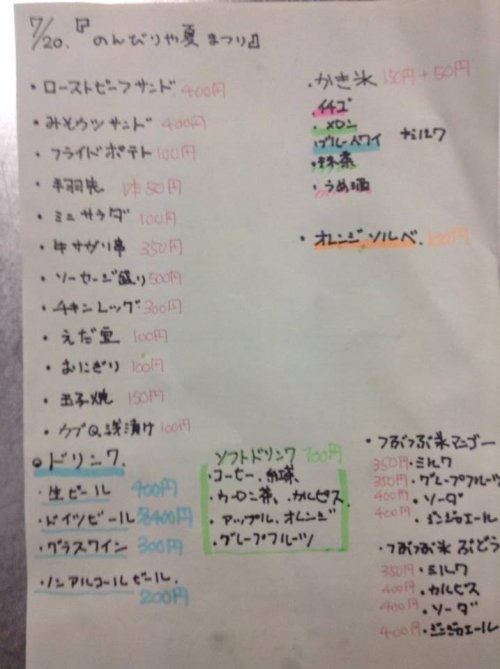 7/20.『のんびりや夏まつり』
・ローストビーフサンド 400円
・みそカツサンド 400円
・フライドポテト 100円
・手羽先 1本50円
・ミニサラダ 100円
・牛サガリ串 350円
・ソーセージ盛り 500円
・チキンレッグ 300円
・えだ豆 100円
・おにぎり 100円
・玉子焼 150円
・カブQ浅漬け 100円
・かき氷 150円+50円
・イチゴ
・メロン
・ブルーハワイ +ミルク
・抹茶
・うめ酒
・オレンジソルベ. 100円
・ドリンク.
・生ビール 400円
・ドイツビール 400円
・グラスワイン 300円
・ノンアルコールビール.
200円
ソフトドリンク 100円
・コーヒー.紅茶.
ウーロン茶.カルピス.
・アップル.オレンジ
・グレープフルーツ
・つぶつぶ氷マンゴー
350円・ミルク
350円・グレープフルーツ
400円・ソーダ
400円・ジンジャエール
・つぶつぶ氷 ぶどう
350円・ミルク
400円・カルピス
400円・ソーダ
400円・ジンジャエール